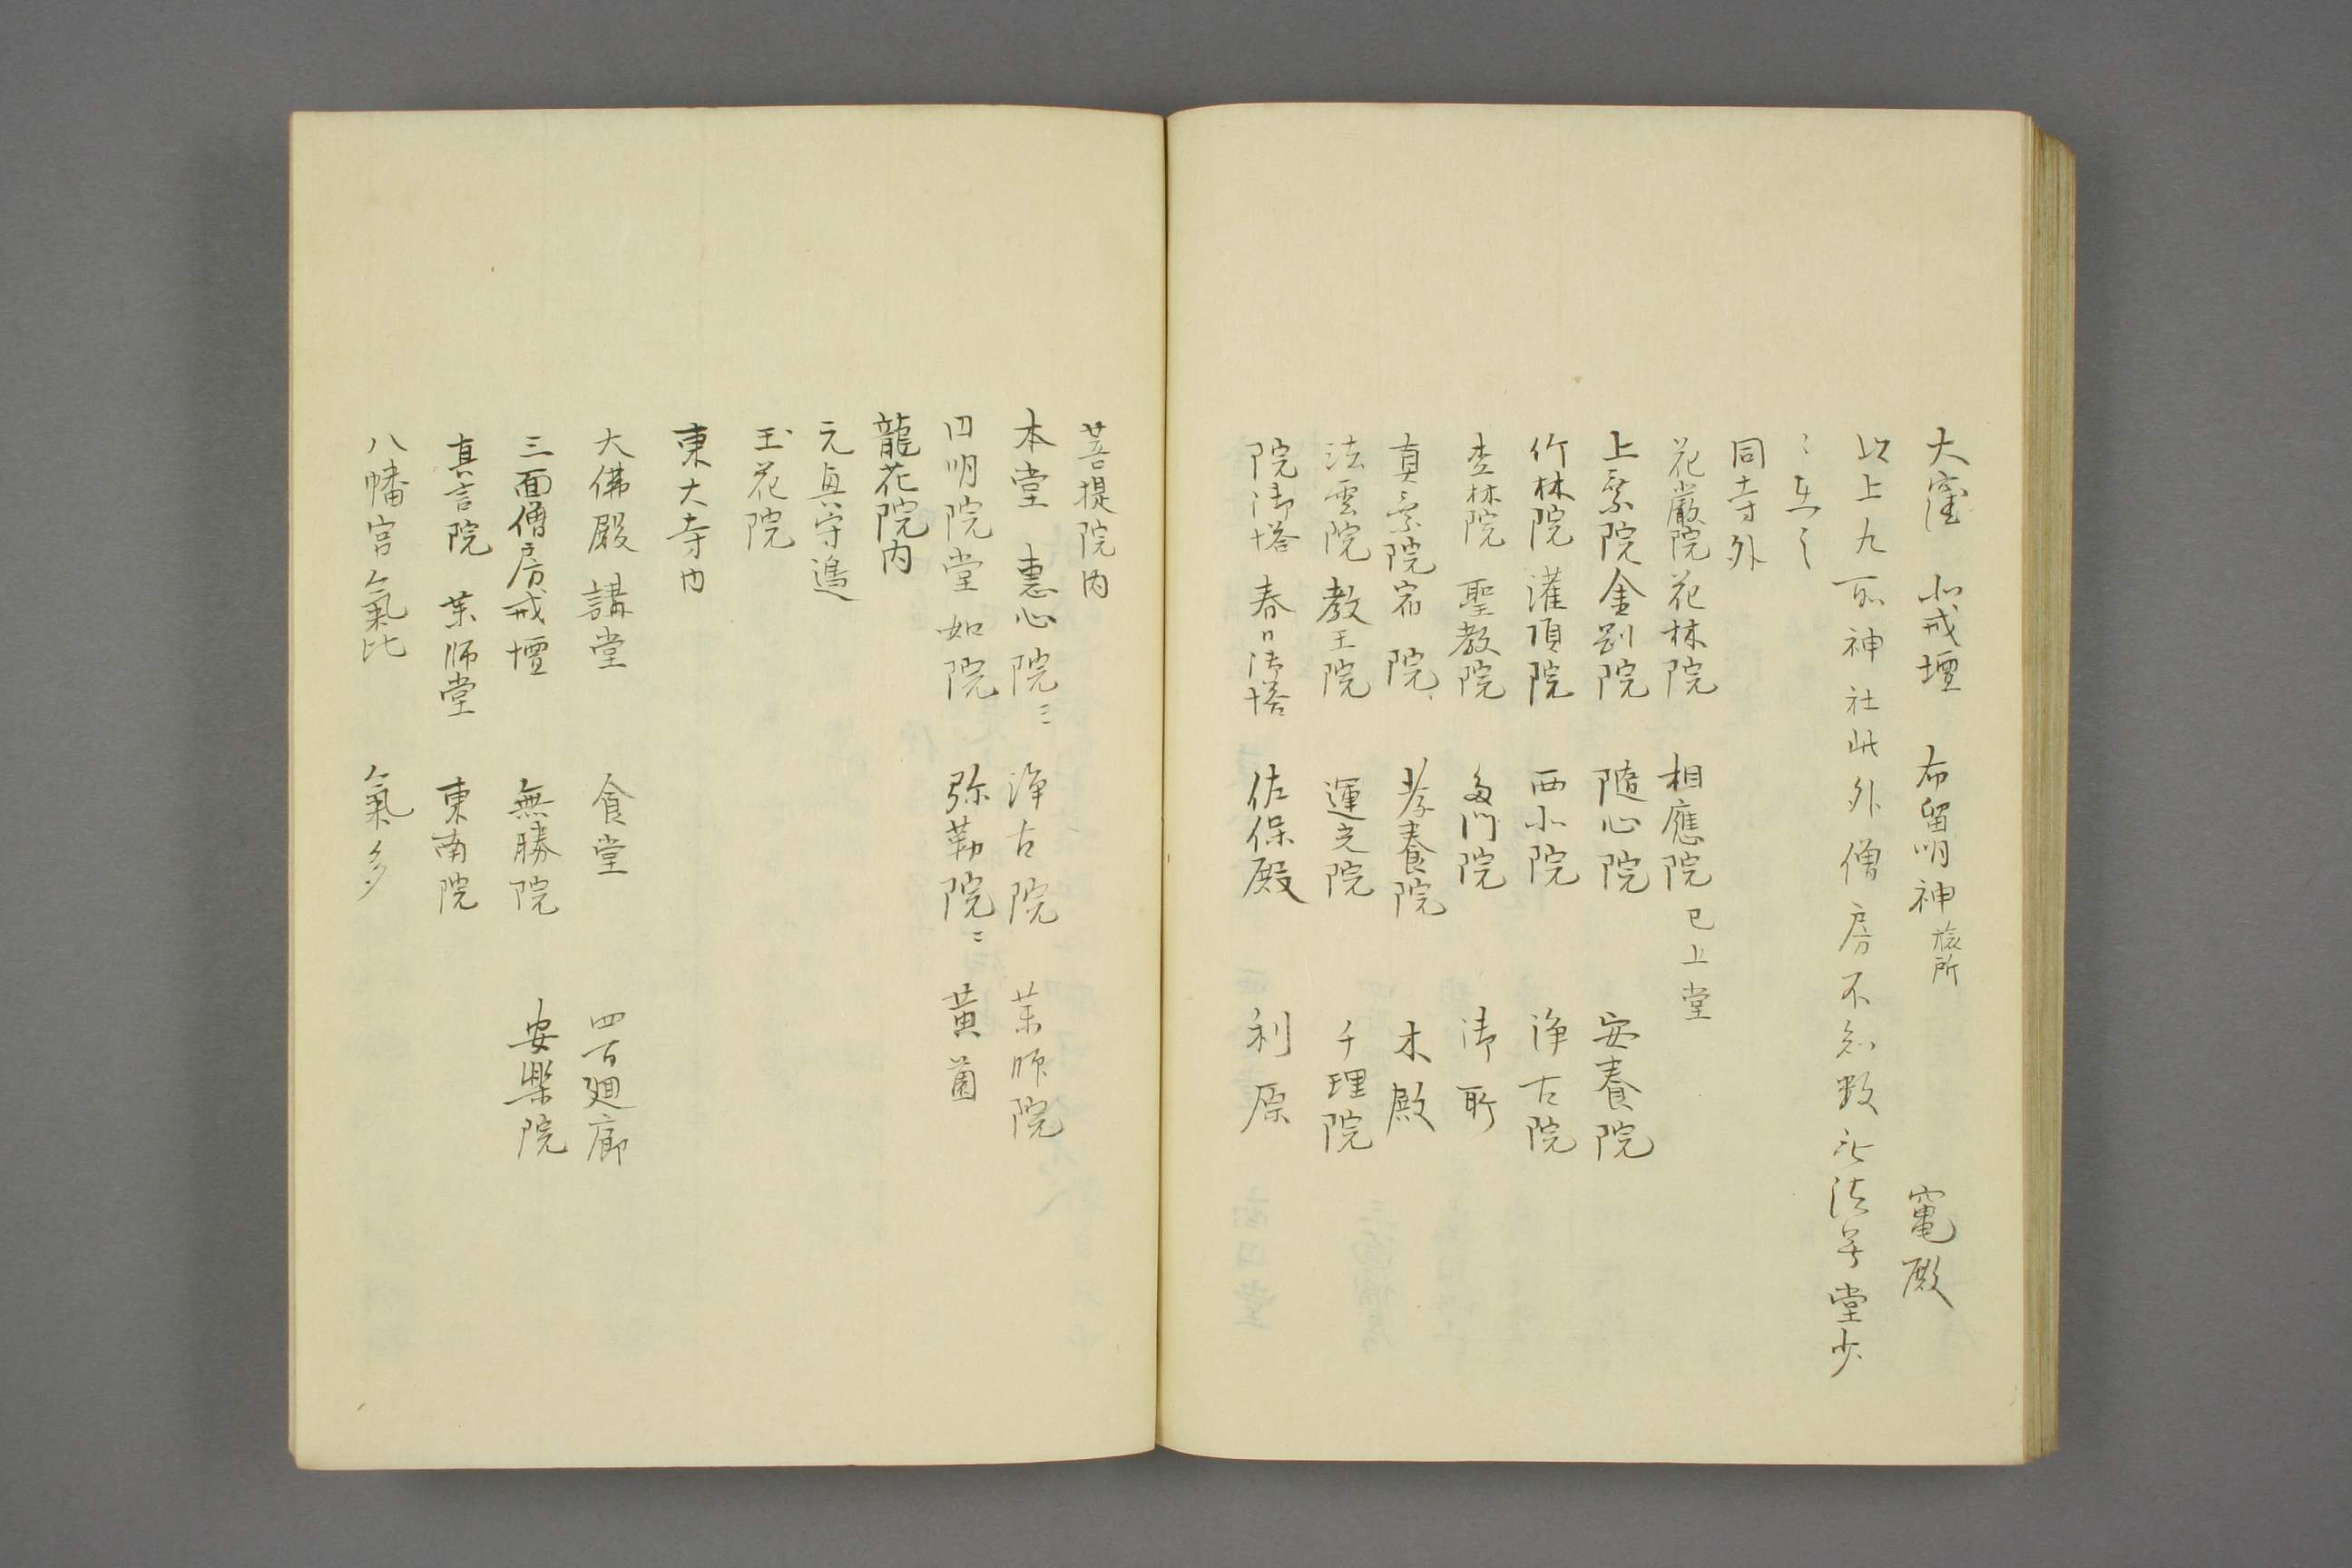 大窪　北戒壇　布留明神旅所　竃殿
以上九所神社此外僧房不知数礼法等堂少
々在之
同寺外
花嚴院花林院　相應院已上堂
上乗院金剛院　隨心院　安養院
竹林院灌頂院　西北院　浄古院
杢林院聖教院　多門院　御所
真言院宿院　孝養院　木殿
法雲院教王院　蓮光院　千理院
院御塔春日御塔　佐保殿　利原
菩提院内
本堂　恵心院　浄古院　薬師院
四明院堂如院　弥勒院　黄菌
龍花院内
元興寺邊
玉花院
東大寺内
大佛殿講堂　食堂　四百廻廊
三面僧房戒壇　無勝院　安樂院
真言院　薬師堂　東南院
八幡宮氣比　氣多